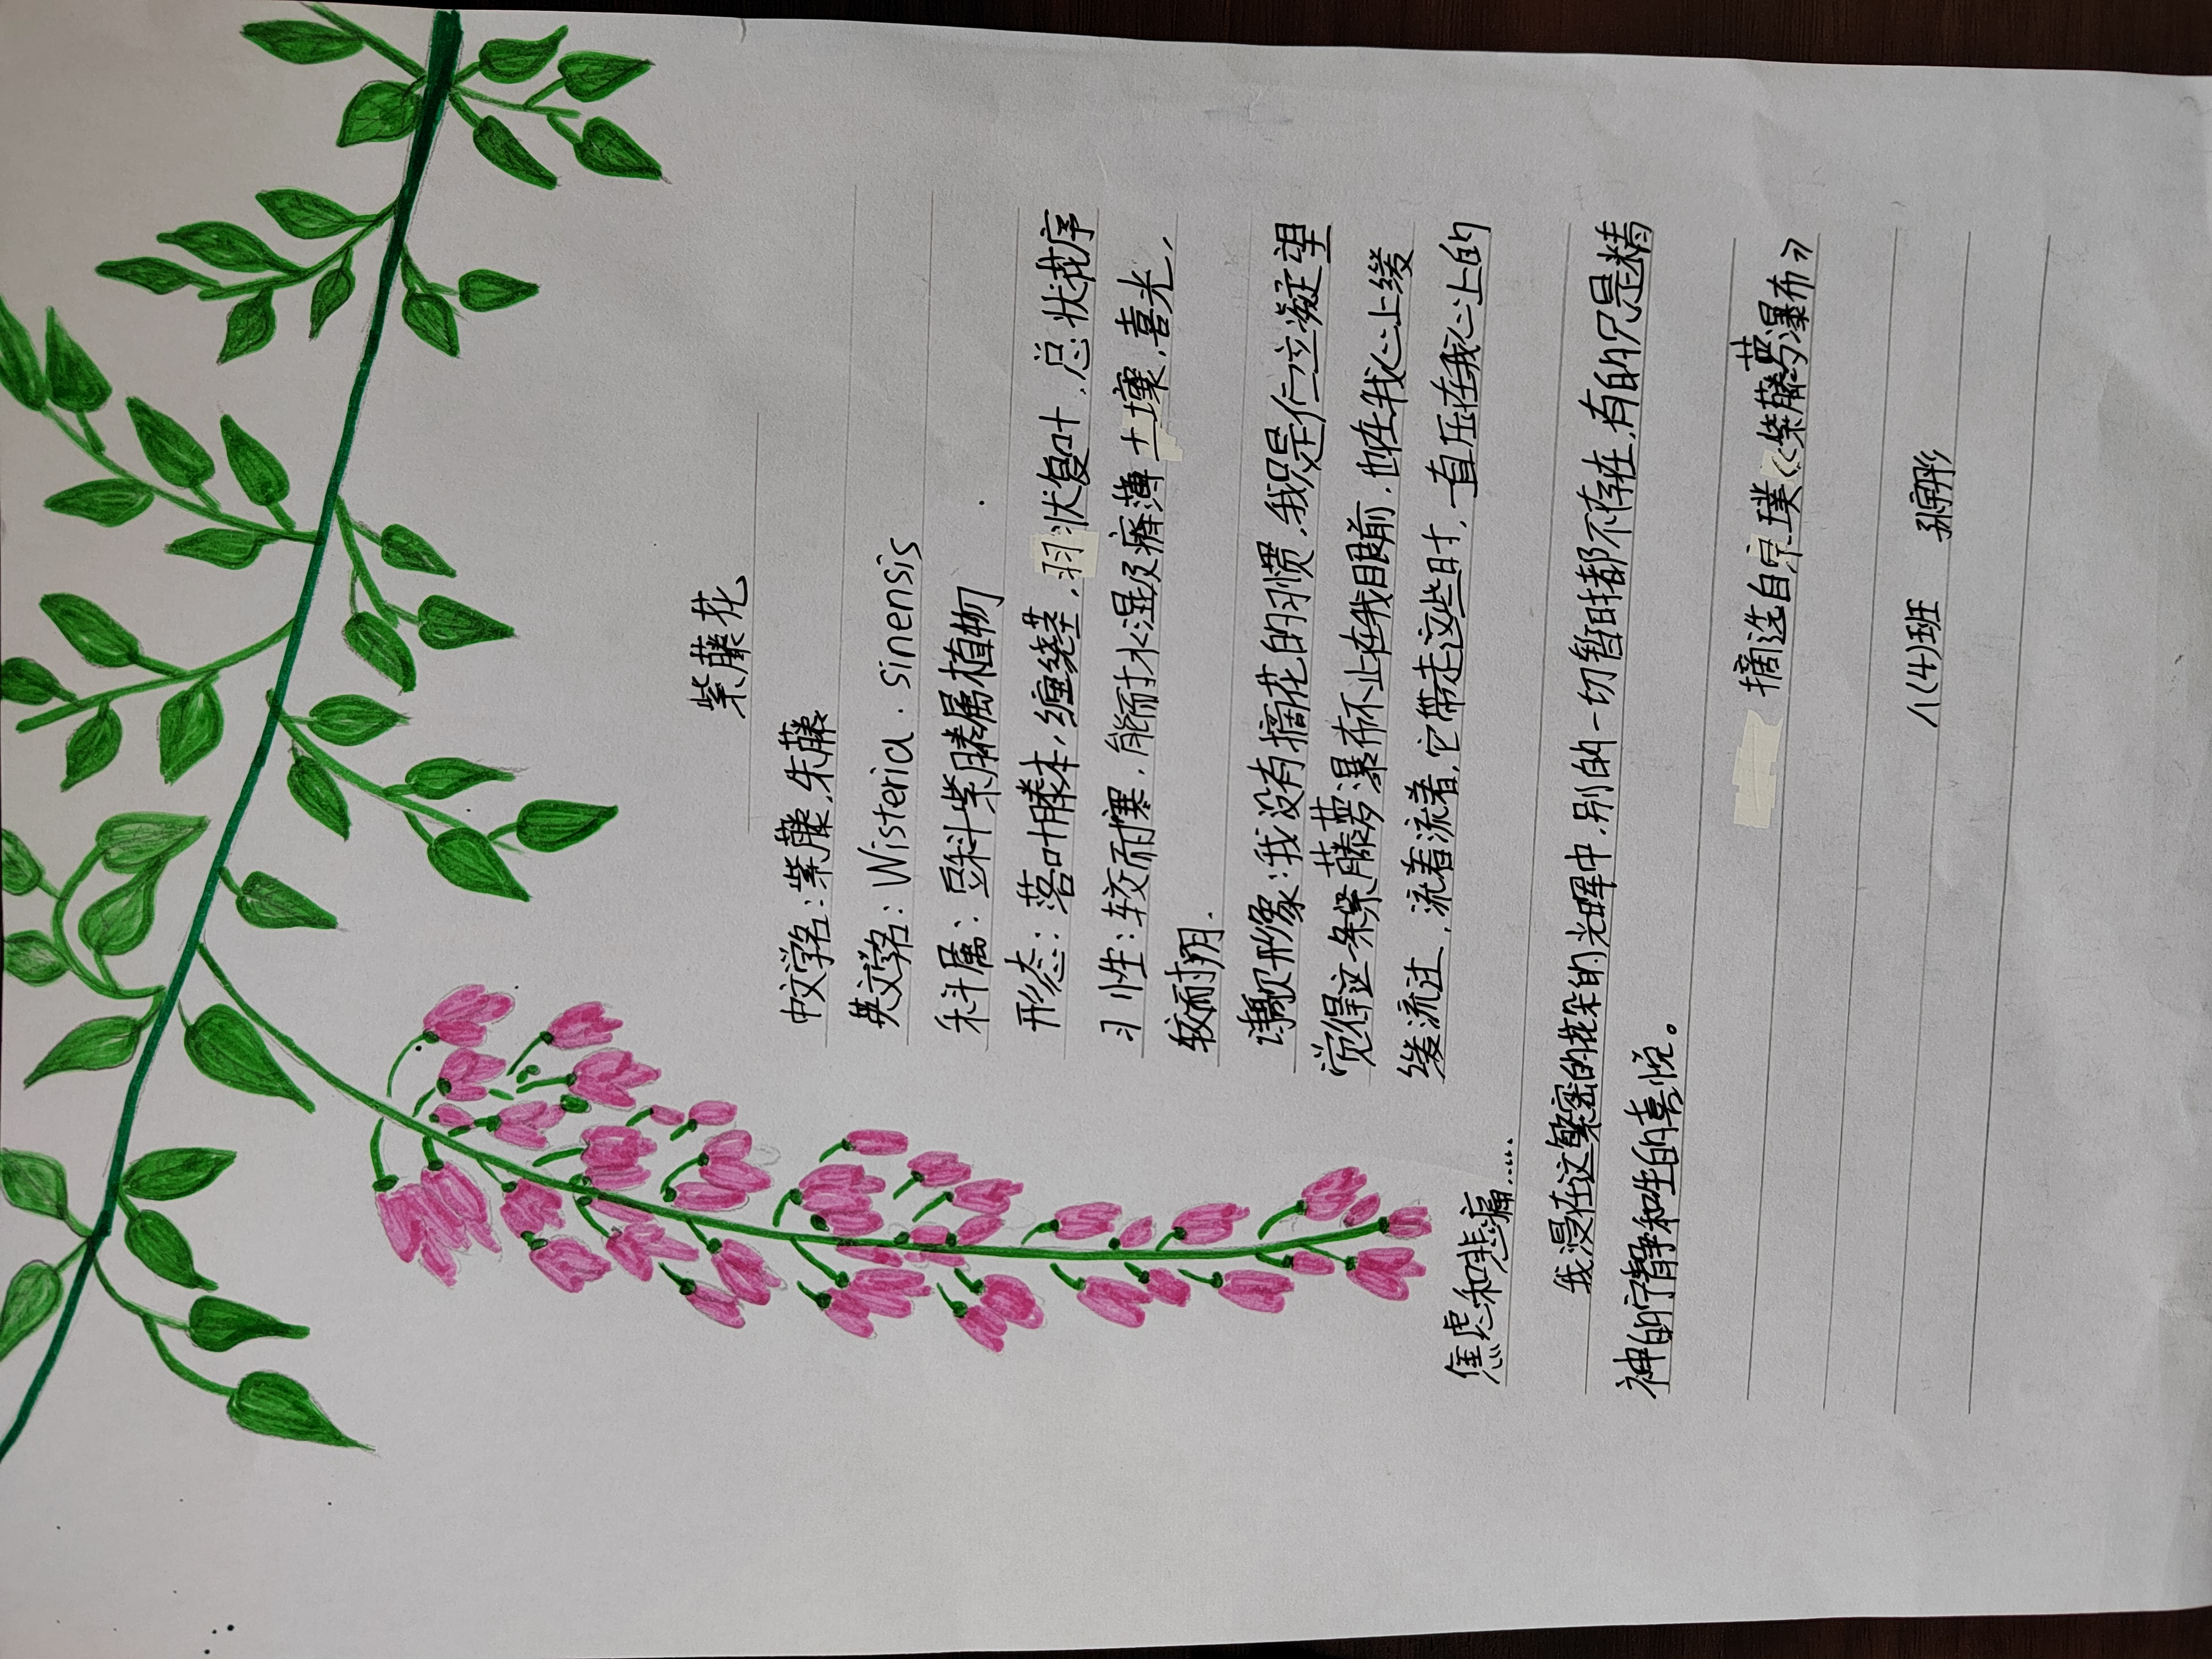 紫藤花
中文学名：紫藤，朱藤
英文学名：Wisteria . sinensis
科属：豆科紫藤属植物
形态：落叶藤本，缠绕茎，羽状复叶，总状花序
习性：较耐寒，能耐水湿及瘠薄土壤，喜光，
较耐阴.
诗歌形象：我没有摘花的习惯，我只是伫立凝望
觉得这一条紫藤萝瀑布不止在我眼前，也在我心上缓
缓流过，流着流着，它带走这些时，一直压在我心上的
焦虑和悲痛……
我浸在这繁密的花朵的光晖中，别的一切暂时都不存在，有的只是精
神的宁静和生的喜悦。
摘选自宗璞《紫藤萝瀑布》
八(4)班